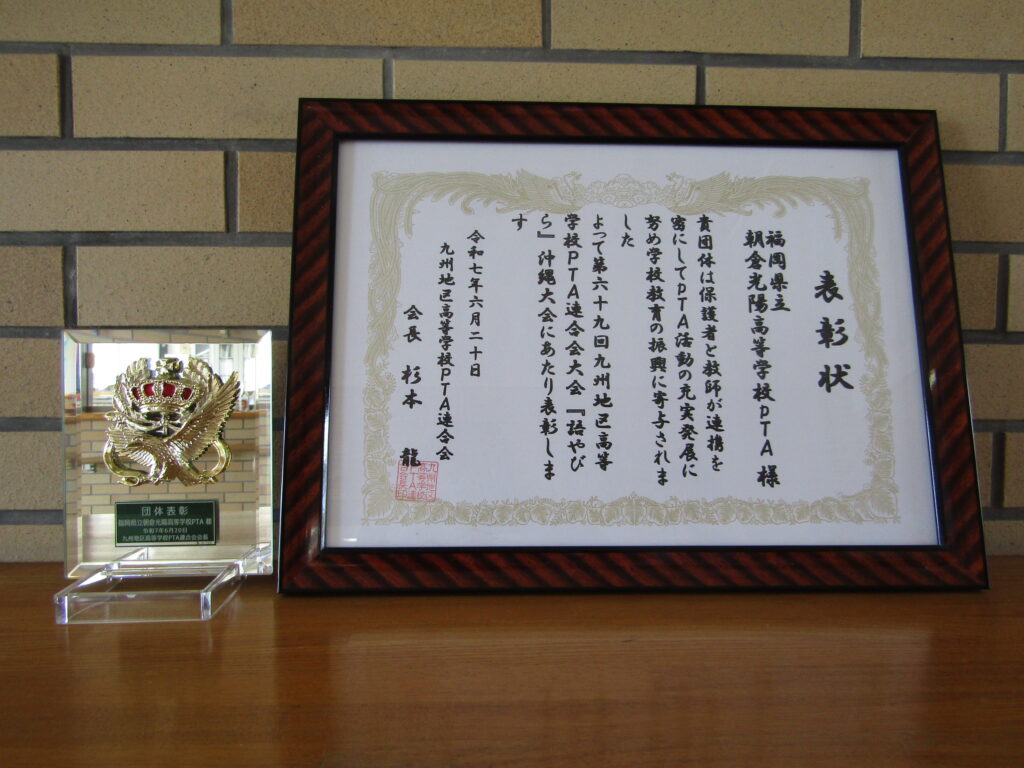 表彰状
福岡県立
朝倉光陽高等学校PTA 様
貴団体は保護者と教師が連携を
密にしてPTA活動の充実発展に
努め学校教育の振興に寄与されま
した
よって第六十九回九州地区高等
学校PTA連合会大会『語やび
ら』沖縄大会にあたり表彰しま
す
令和七年六月二十日
九州地区高等学校PTA連合会
会長 杉本 龍
団体表彰
福岡県立朝倉光陽高等学校PTA 様
令和7年6月20日
九州地区高等学校PTA連合会会長